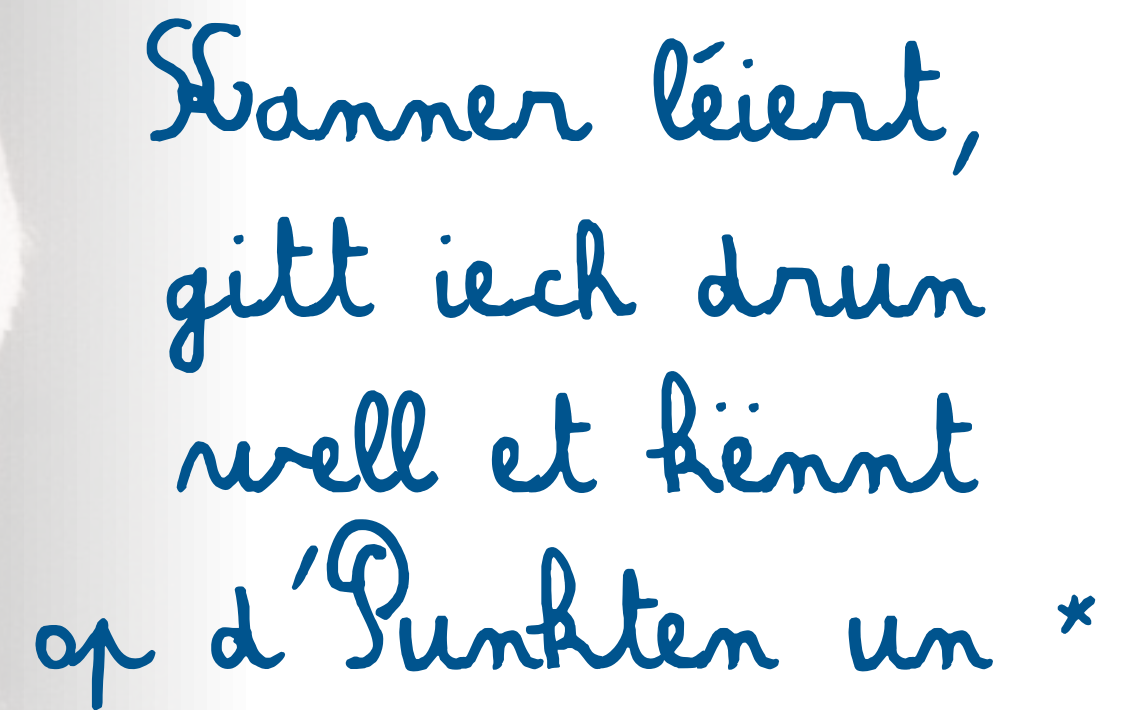 Kanner léiert,
gitt iech drun
well et kënnt
op d'Punkten un *